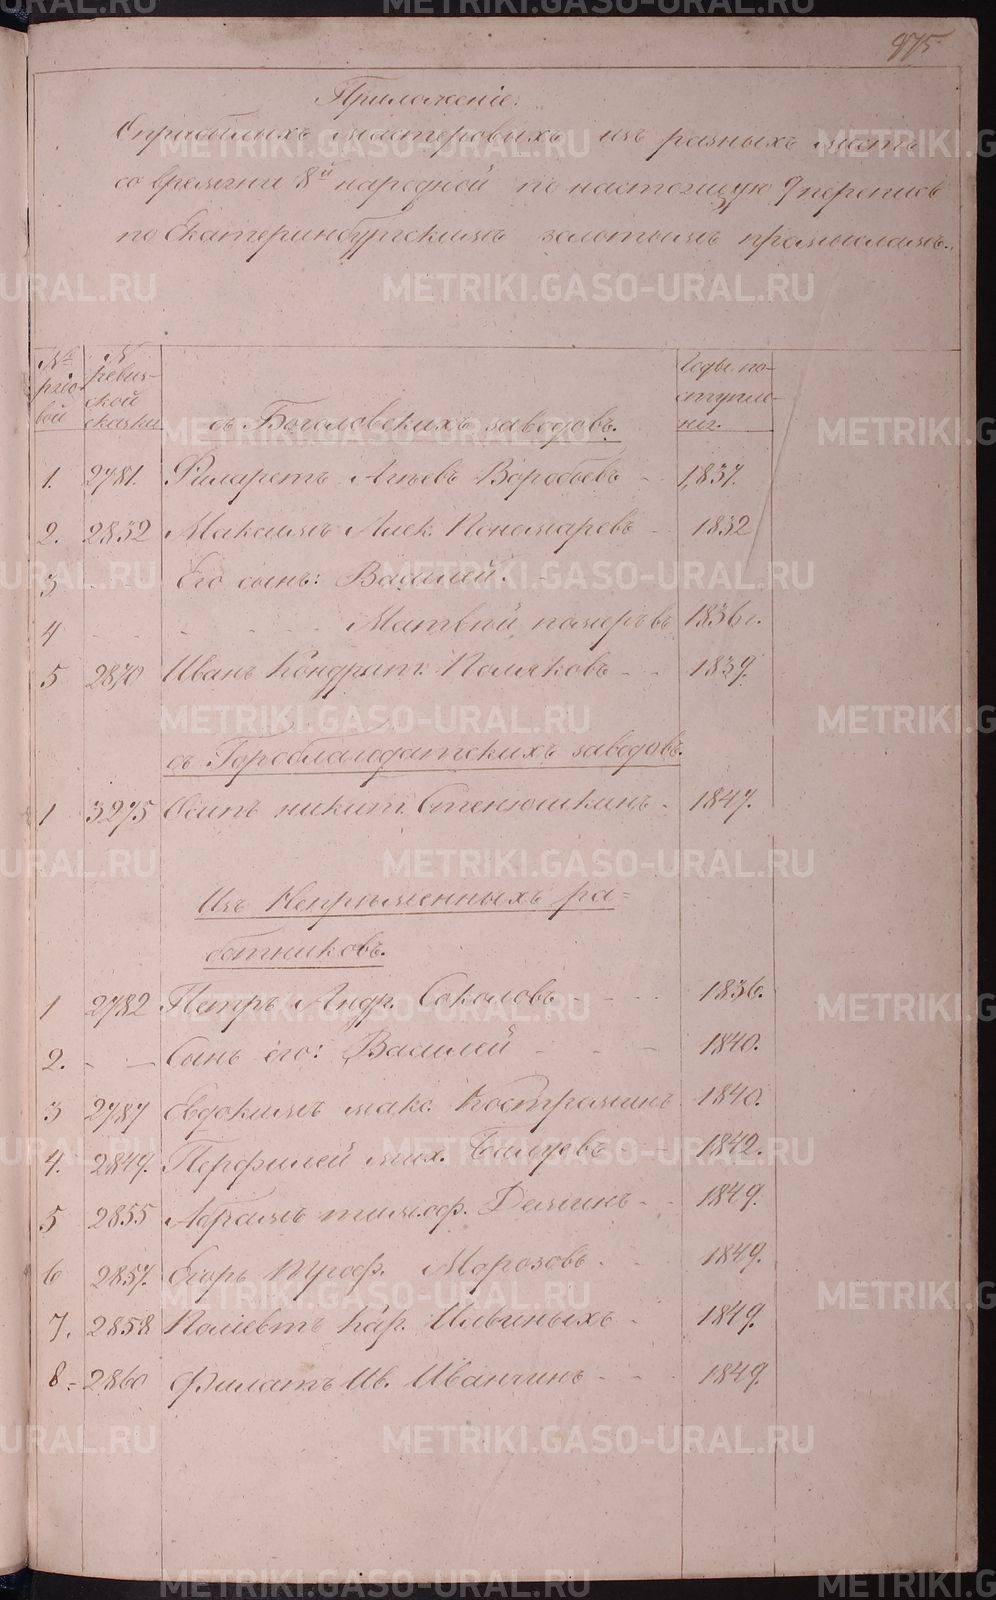 975
Приложеніе.
О прибылыхъ мастеровыхъ изъ разныхъ мѣстъ
со времяни 8й народной по настоящую 9 перепись
по Екатеринбургскимъ золотымъ промысламъ.
№ рядовой
№ ревизской сказки
съ Богословскихъ заводовъ.
Годы поступленія.
1. 2781. Филаретъ Агѣевъ Воробьевъ - 1837.
2. 2832 Максимъ Алек. Пономаревъ - 1832
3 - Его сынъ: Василей. -
4 Матвѣй Пономаревъ 1836 г.
5 2870 Иванъ Кондрат. Поляковъ - - 1839.
съ Гороблагодатскихъ заводовъ.
1 3275 Осипъ Никит. Стенюшкинъ - 1847.
Изъ Непремѣнныхъ ра-
ботниковъ.
1 2782 Петръ Андр. Соколовъ - - - 1836.
2. - - Сынъ его: Василей - - - 1840.
3 2787 Евдокимъ Макс. Костроминъ 1840.
4. 2849. Перфилей Мих. Балуевъ - - 1842.
5 2855 Абрамъ Тимоф. Деминъ - - 1849.
6 2857. Егоръ Троф. Морозовъ - - 1849.
7. 2858 Поліевтъ Кар. Ильиныхъ - 1849.
8 = 2860 Филатъ Ив. Иванчинъ - - - 1849.
METRIKI.GASO-URAL.RU